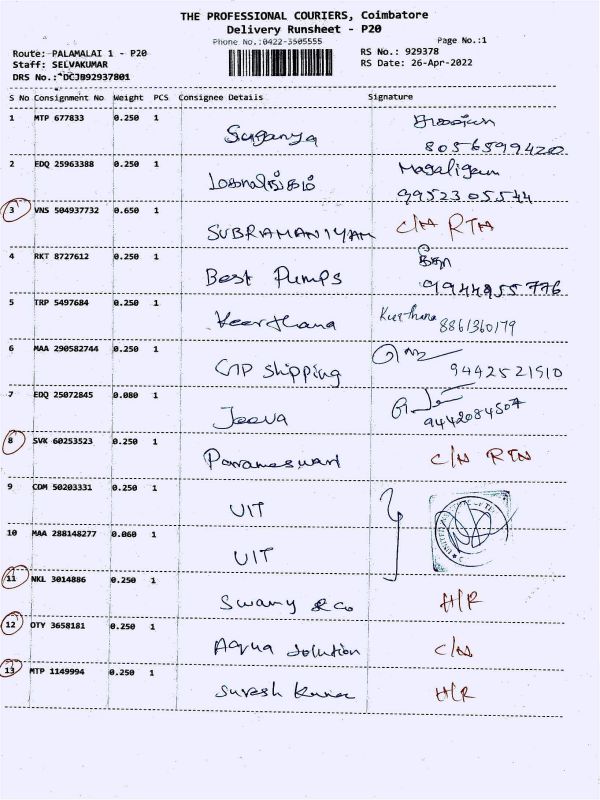 THE PROFESSIONAL COURIERS, Coimbatore
Delivery Runsheet - P20
Phone No.:0422-3505555 Page No.:1
Route: PALAMALAI 1 - P20 RS No.: 929378
Staff: SELVAKUMAR RS Date: 26-Apr-2022
DRS No.: DCJB92937801
S No Consignment No Weight PCS Consignee Details Signature
1 MTP 677833 0.250 1 Suganya
8056599420
2 EDQ 25963388 0.250 1 மகாலிங்கம் Magaligam
9952305544
3 VNS 504937732 0.650 1 SUBRAMANIYAM C/N RTN
4 RKT 8727612 0.250 1 Best Pumps
9944955776
5 TRP 5497684 0.250 1 Keerthana Keerthana 8861360179
6 MAA 290582744 0.250 1 GTP Shipping 9442521910
7 EDQ 25072845 0.080 1 Jeeva 9442084507
8 SVK 60253523 0.250 1 Parameswari C/N RTN
9 COM 50203331 0.250 1 UIT
10 MAA 288148277 0.060 1 UIT
11 NKL 3014886 0.250 1 Swamy & Co H/R
12 OTY 3658181 0.250 1 Aqua Solution C/N
13 MTP 1149994 0.250 1 Suresh Kumar H/R